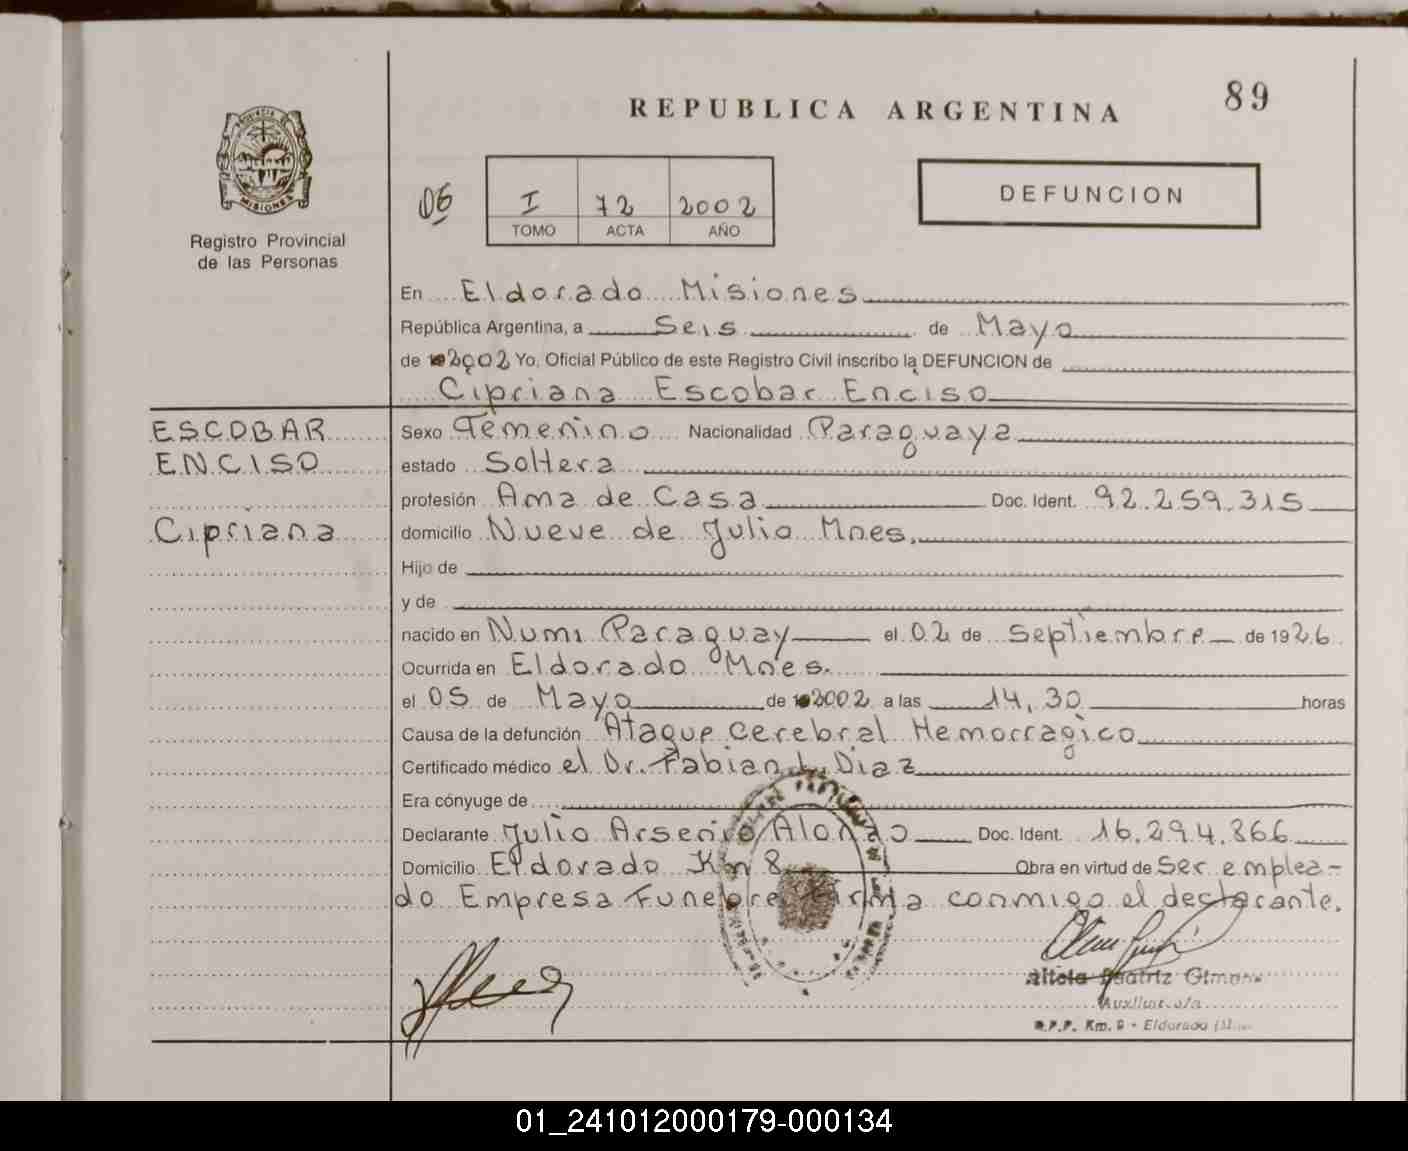 89
REPUBLICA ARGENTINA
PROVINCIA DE
MISIONES
Registro Provincial
de las Personas
06
I 72 2002
TOMO ACTA AÑO
DEFUNCION
En Eldorado Misiones
República Argentina, a Seis de Mayo
de 2002 Yo, Oficial Público de este Registro Civil inscribo la DEFUNCION de
Cipriana Escobar Enciso
ESCOBAR
ENCISO
Cipriana
Sexo Femenino Nacionalidad Paraguaya
estado Soltera
profesión Ama de Casa Doc. Ident. 92.259.315
domicilio Nueve de Julio Mnes.
Hijo de
y de
nacido en Numi Paraguay el 02 de Septiembre de 1926
Ocurrida en Eldorado Mnes.
el 05 de Mayo de 2002 a las 14,30 horas
Causa de la defunción Ataque cerebral Hemorragico
Certificado médico el Dr. Fabian L. Diaz
Era cónyuge de
Declarante Julio Arsenio Alonzo Doc. Ident. 16.294.866
Domicilio Eldorado Km 8 Obra en virtud de Ser emplea-
do Empresa Funebre firma conmigo el declarante.
Beatriz
Auxiliar
Km. 9 - Eldorado
01_241012000179-000134